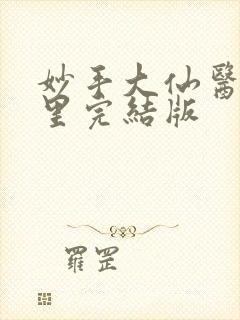 妙手大仙醫
里完結版
羅罡